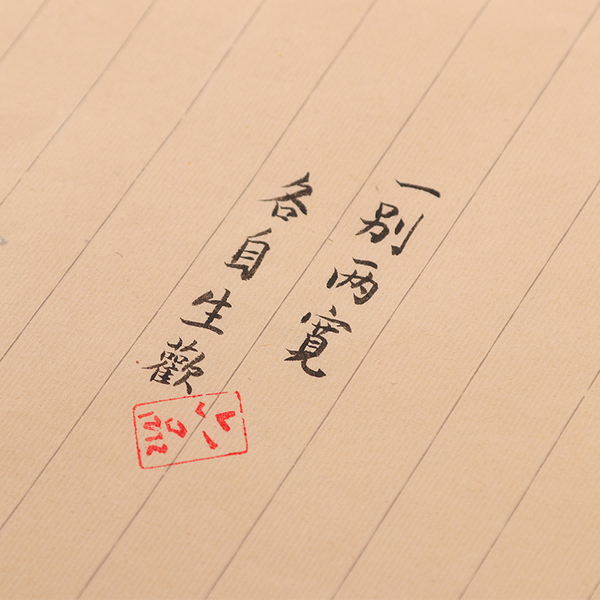 一别两寬
各自生歡